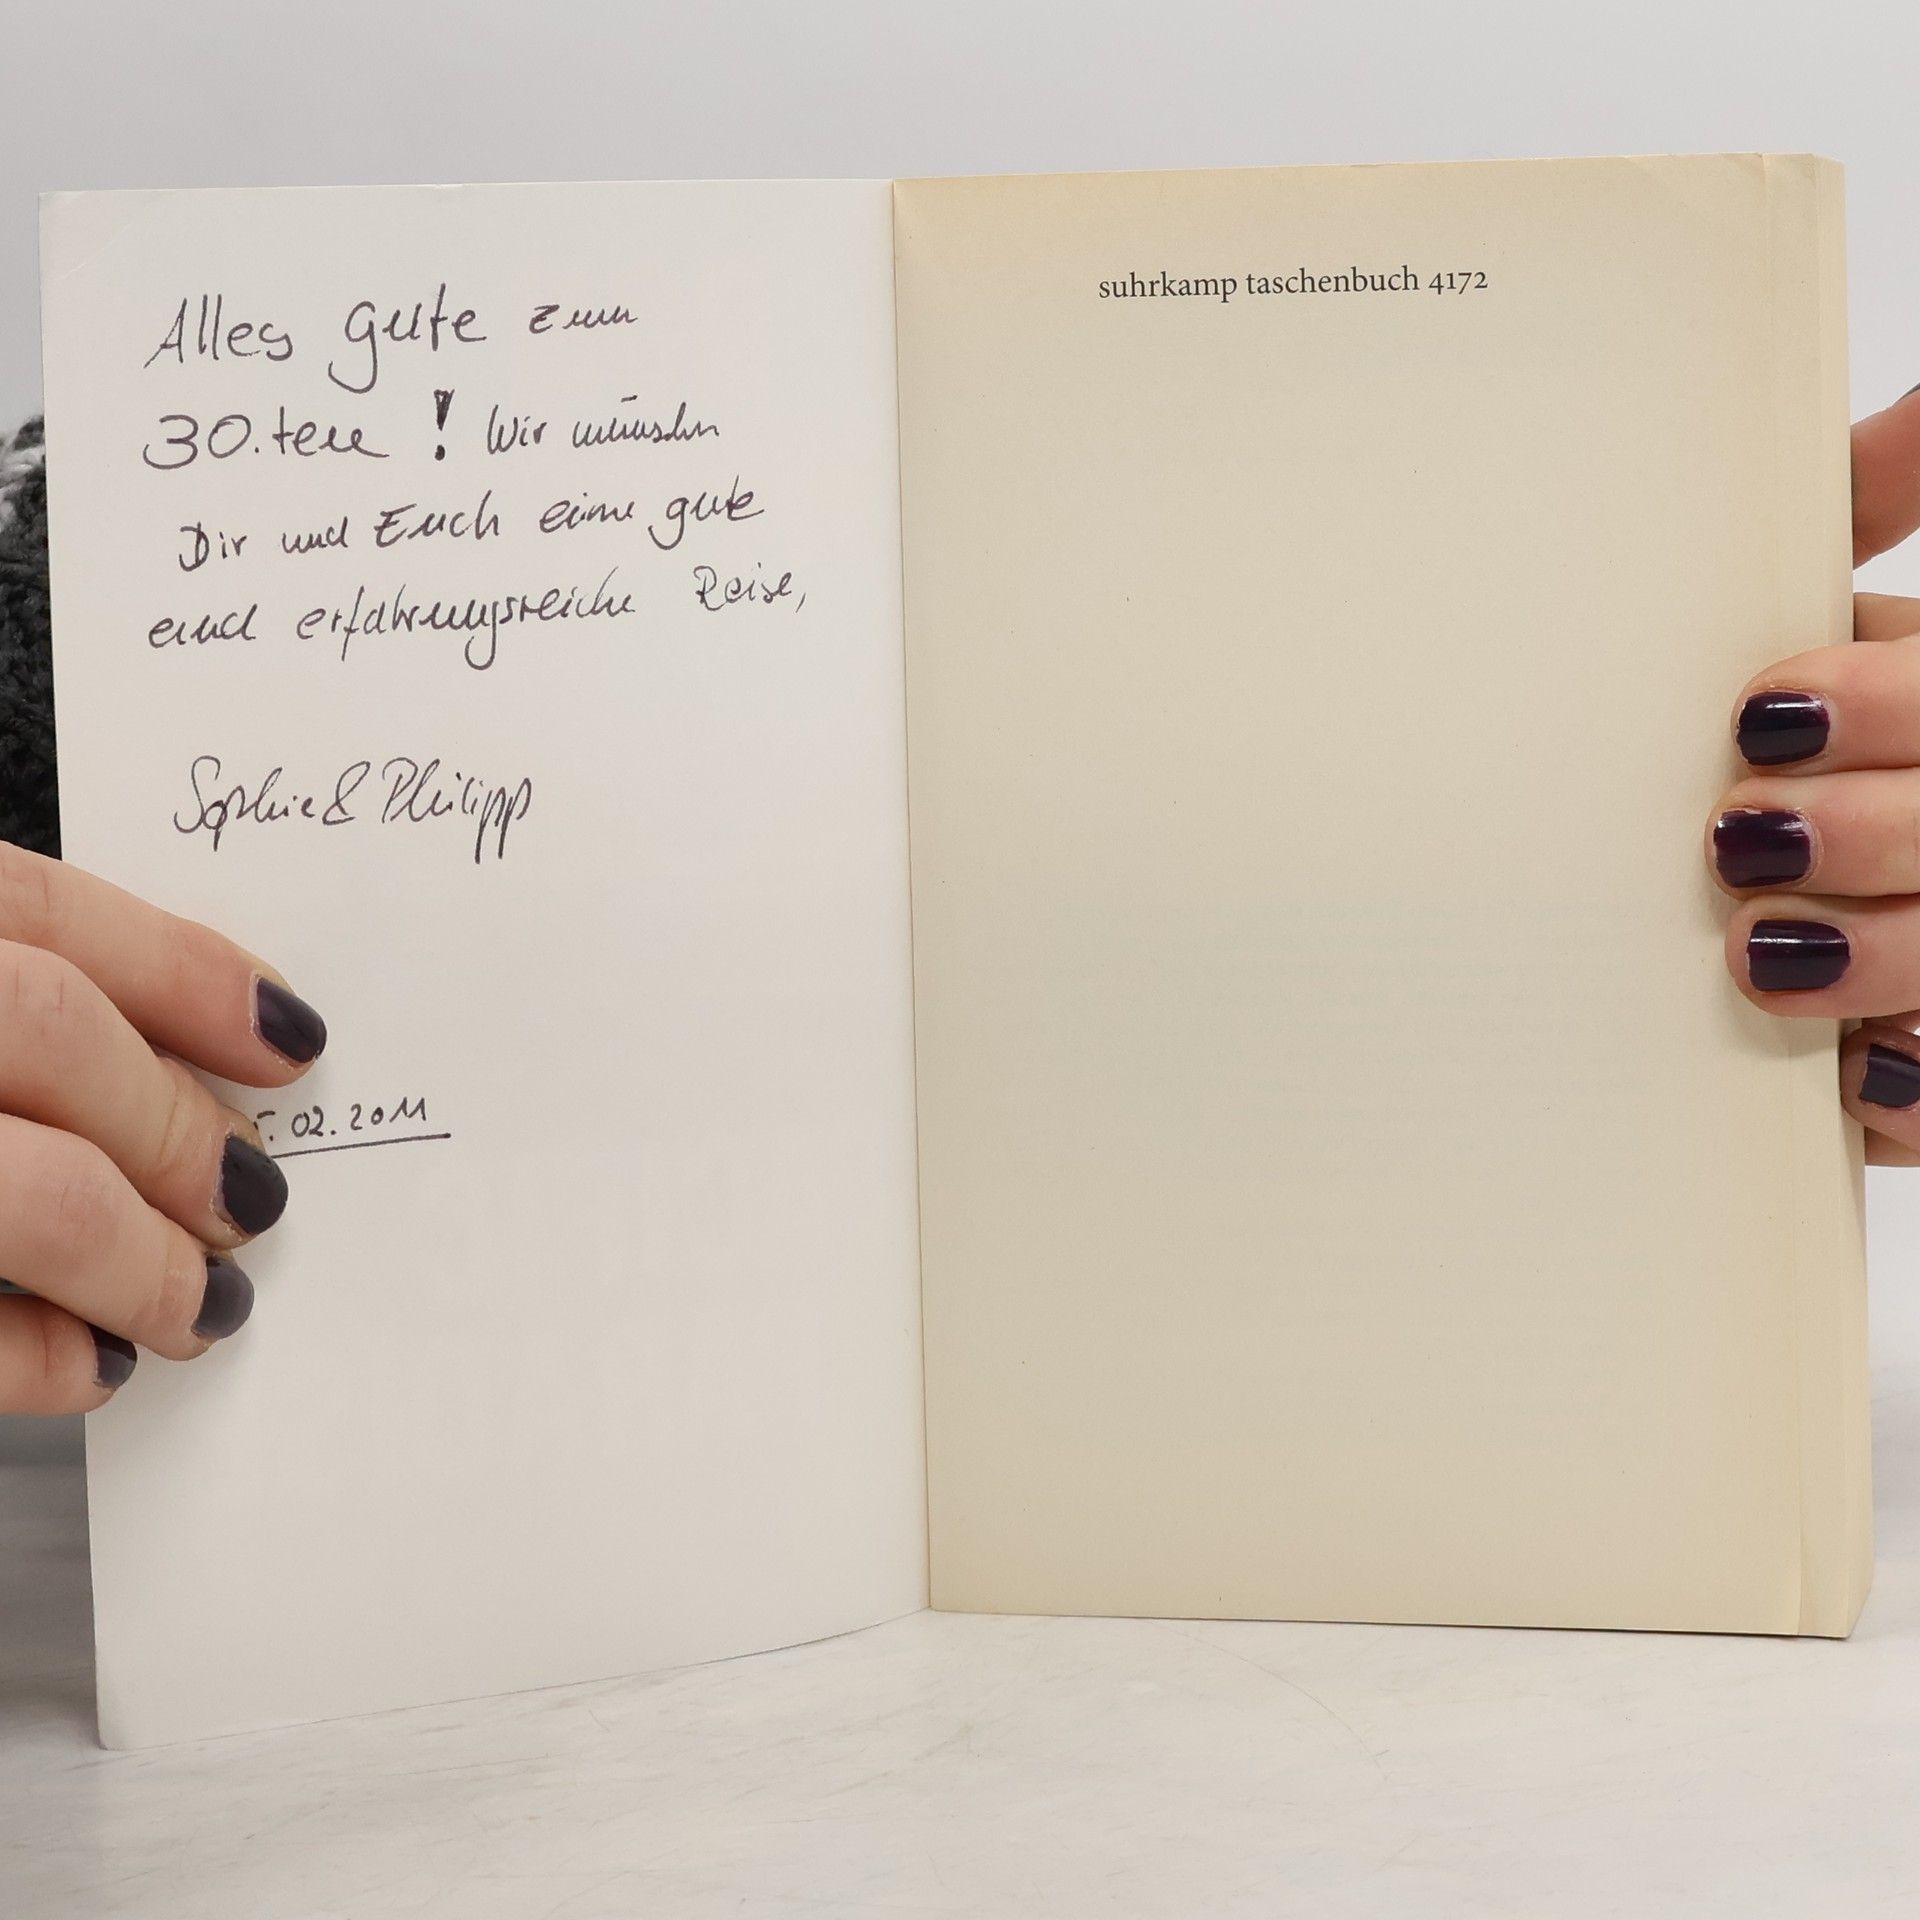 Alles gute zum
30.ten! Wir wünschen
Dir und Euch eine gute
und erfahrungsreiche Reise,
Sophie & Philipp
.02.2011
suhrkamp taschenbuch 4172